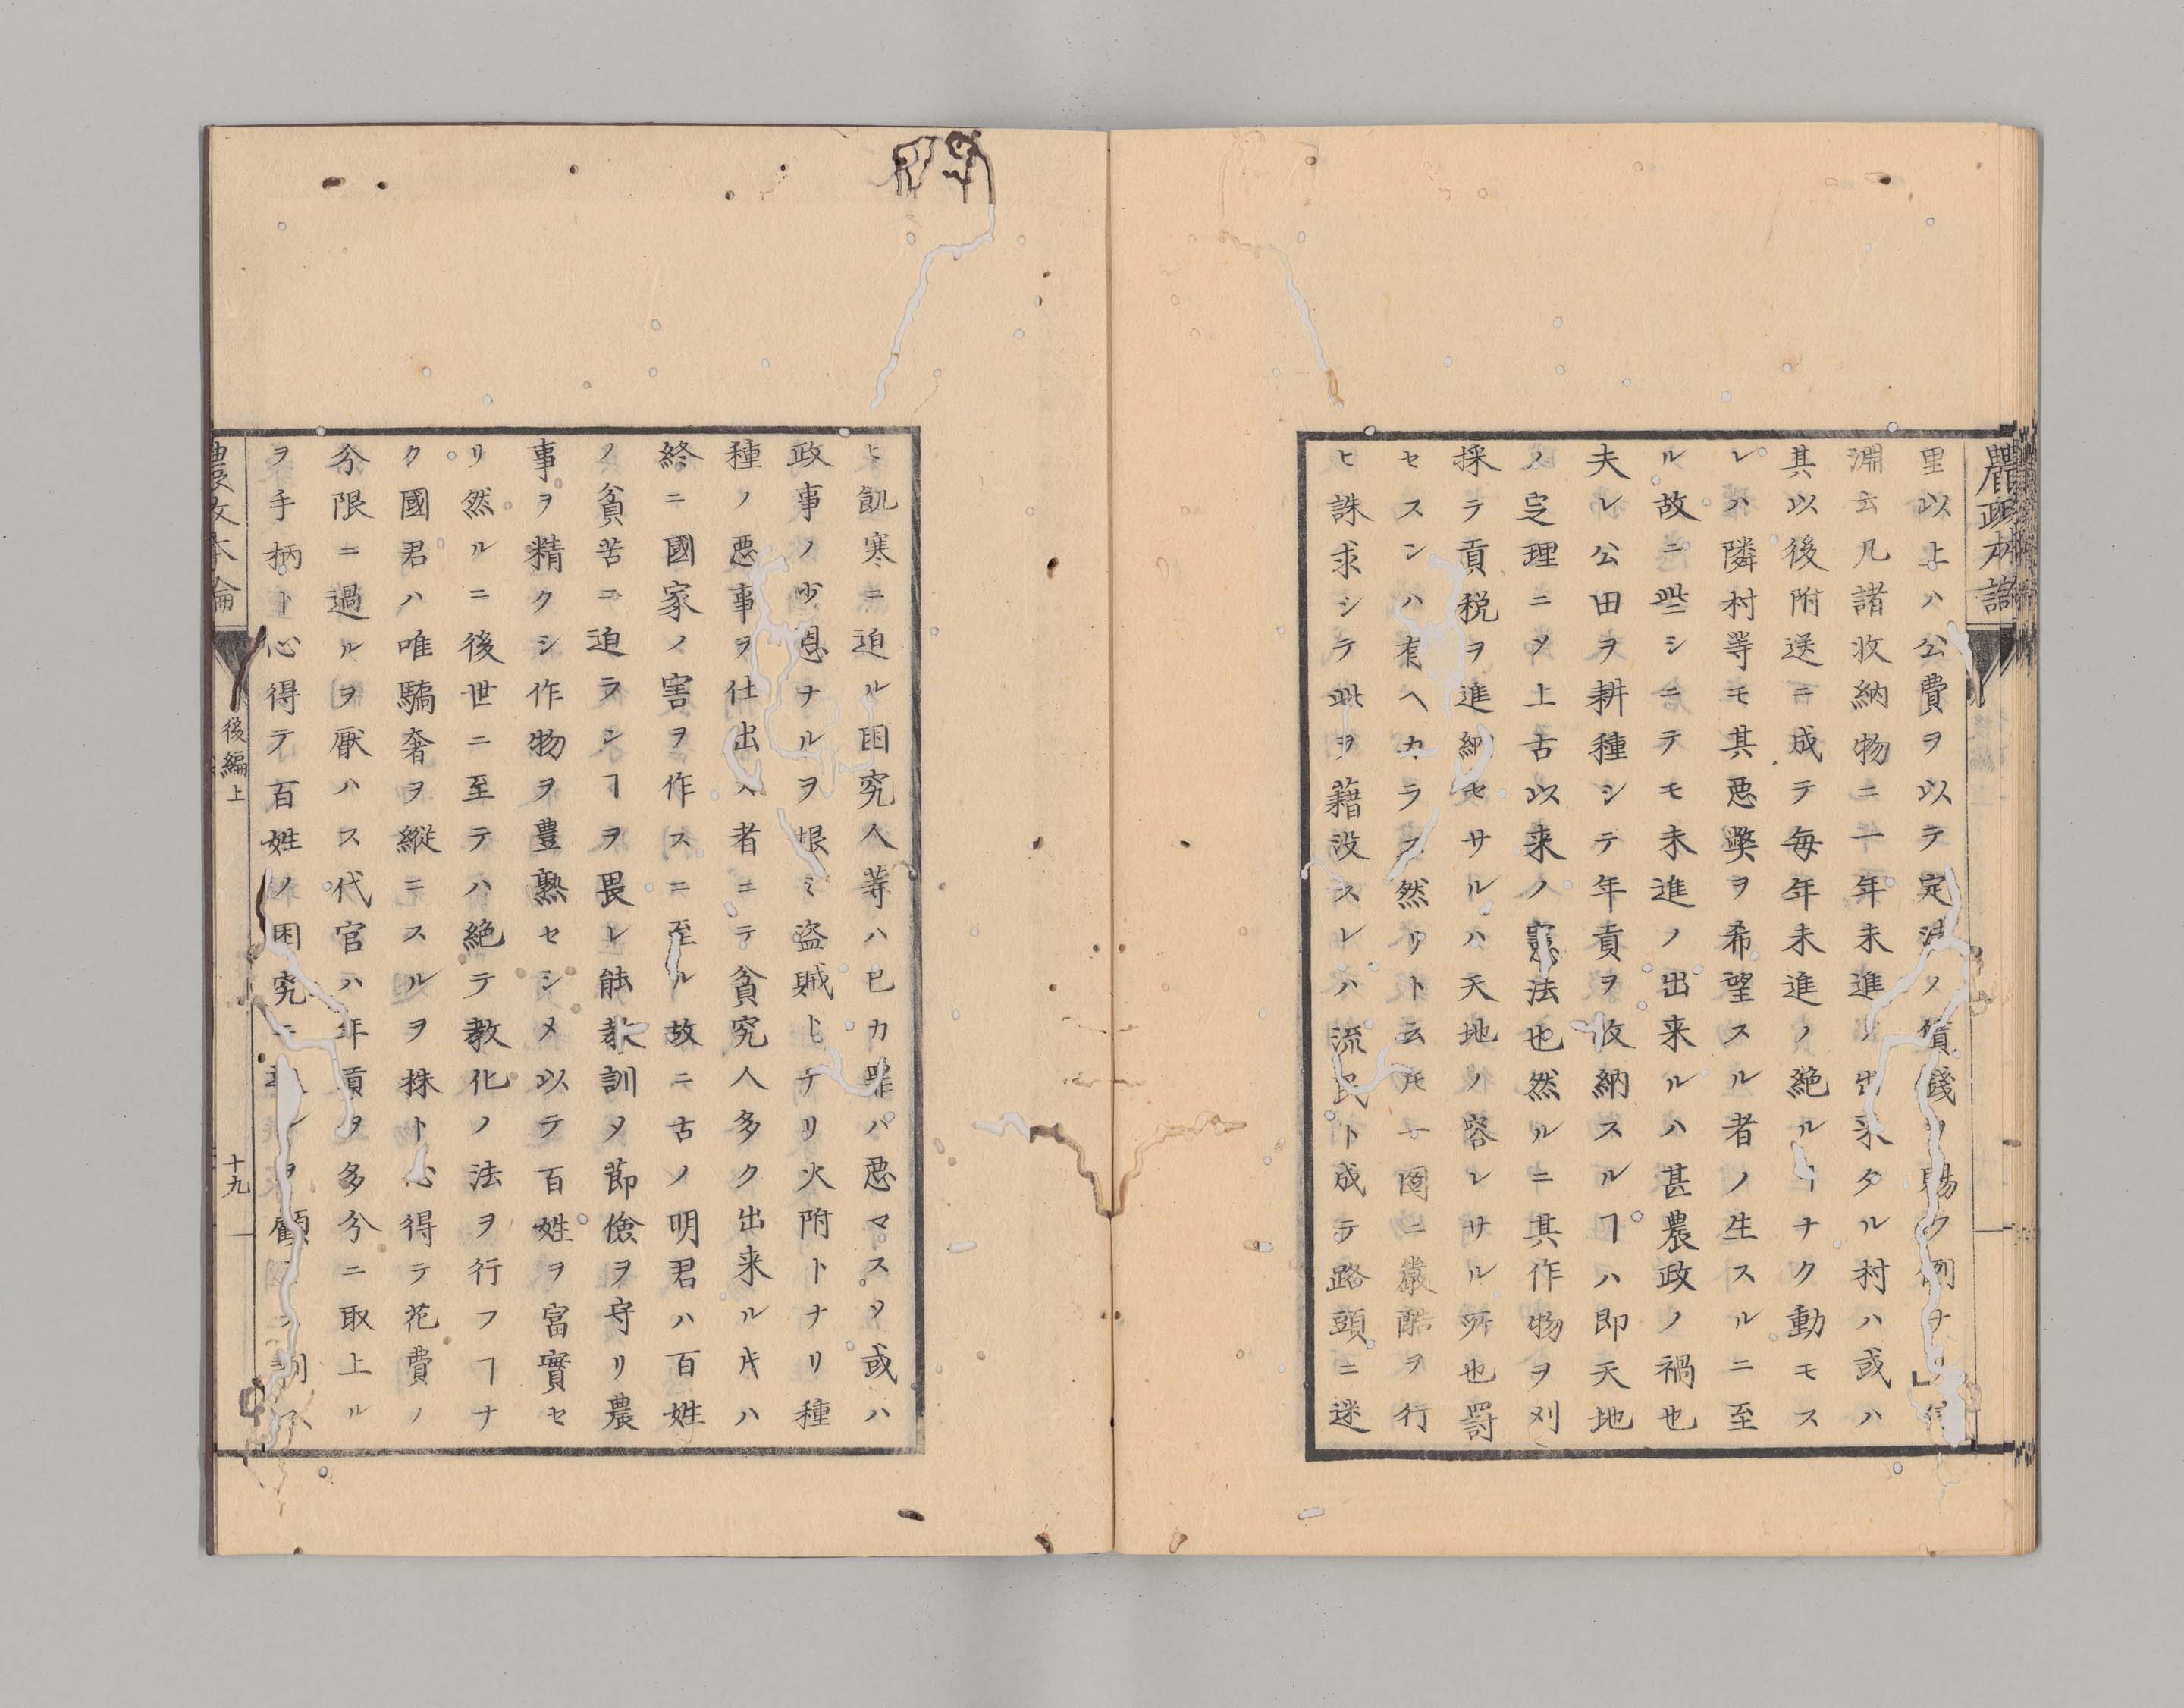 農政本論
里以上ハ公費ヲ以テ定法ノ賃錢ヲ賜フ例ナリ」信
淵云凡諸收納物ニ一年未進ノ出来タル村ハ或ハ
其以後附送ニ成テ毎年未進ノ絶ルヿナク動モス
レハ隣村等モ其惡弊ヲ希望スル者ノ生スルニ至
ル故ニ些シニテモ未進ノ出来ルハ甚農政ノ禍也
夫レ公田ヲ耕種シテ年貢ヲ收納スルヿハ即天地
ノ定理ニメ上古以来ノ憲法也然ルニ其作物ヲ刈
採テ貢税ヲ進納セサルハ天地ノ容レサル所也罸
セスンハ有ヘカラス然リト云𪜈一圖ニ嚴酷ヲ行
ヒ誅求シテ此ヲ藉没スレハ流民ト成テ路頭ニ迷
ヒ飢寒ニ迫ル困究人等ハ已カ罪ハ惡マスメ或ハ
政事ノ少恩ナルヲ恨ミ盗賊トナリ火附トナリ種
種ノ惡事ヲ仕出ス者ニテ貧究人多ク出来ル片ハ
終ニ國家ノ害ヲ作スニ至ル故ニ古ノ明君ハ百姓
ノ貧苦ニ迫ランヿヲ畏レ能教訓メ節儉ヲ守リ農
事ヲ精クシ作物ヲ豊熟セシメ以テ百姓ヲ富實セ
リ然ルニ後世ニ至テハ絶テ教化ノ法ヲ行フヿナ
ク國君ハ唯驕奢ヲ縱ニスルヲ株ト心得テ花費ノ
分限ニ過ルヲ厭ハス代官ハ年貢ヲ多分ニ取上ル
ヲ手柄ト心得テ百姓ノ困究ニヲ顧
農政本論
後編上
十九